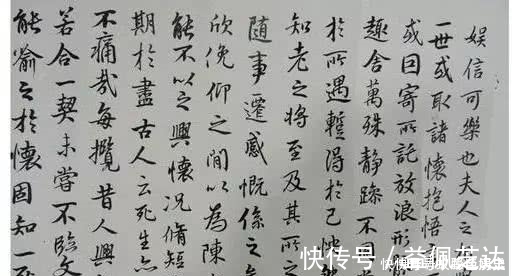 娛信可樂也夫人之
一世或取諸懷抱悟
或因寄所託放浪形
趣舍萬殊靜躁不
於所遇蹔得於己
知老之將至及其所之
隨事遷感慨係之
欣俛仰之間以為陳
能不以之興懷況脩短
期於盡古人云死生亦
不痛哉每攬昔人興
若合一契未嘗不臨文
能喻之於懷固知一死
快传号/